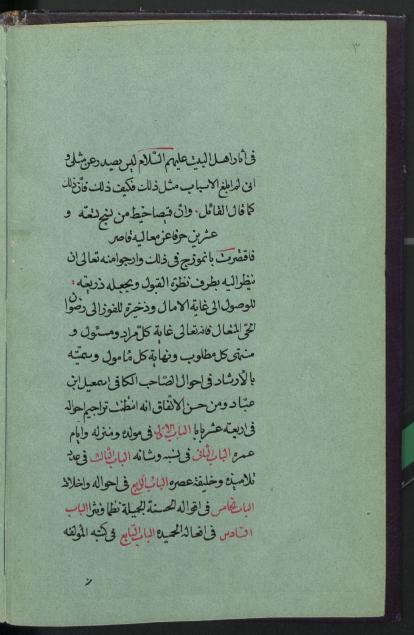 ٣
فى آثار اهل البيت عليهم السّلام ليس يصدر عن مثلى و
انى لم ابلغ الاسباب مثل ذلك فكيف ذلك فان ذلك
كما قال القائل وان قميصا خيط من نسج تسعة و
عشرين حرفا عن معاليه قاصر
فاقتصرت بانموزج فى ذلك وارجو منه تعالى ان
ينظر اليه بطرف نظرة القبول ويجعله ذريعة
للوصول الى غاية الامال وذخيرة للفوز الى رضوان
المتعال فانه تعالى غاية كل مراد ومسئول و
منتهى كل مطلوب ونهاية كل مامول وسميّته
بالارشاد فى احوال الصّاحب الكافى اسمعيل ابن
عبّاد ومن حسن الاتّفاق انه انطبقت تراجيم احواله
فى اربعة عشر بابا الباب الاول فى مولده ومنزله وايام
عمره الباب الثانى فى نسبه وشانه الباب الثالث فى عدد
تلاميذه وخليفة عصره الباب الرابع فى احواله واخلاقه
الباب الخامس فى اقواله الحسنة الجميلة نظما ونثرا الباب
السّادس فى افعاله الحميدة الباب السّابع فى كتبه المؤلفه